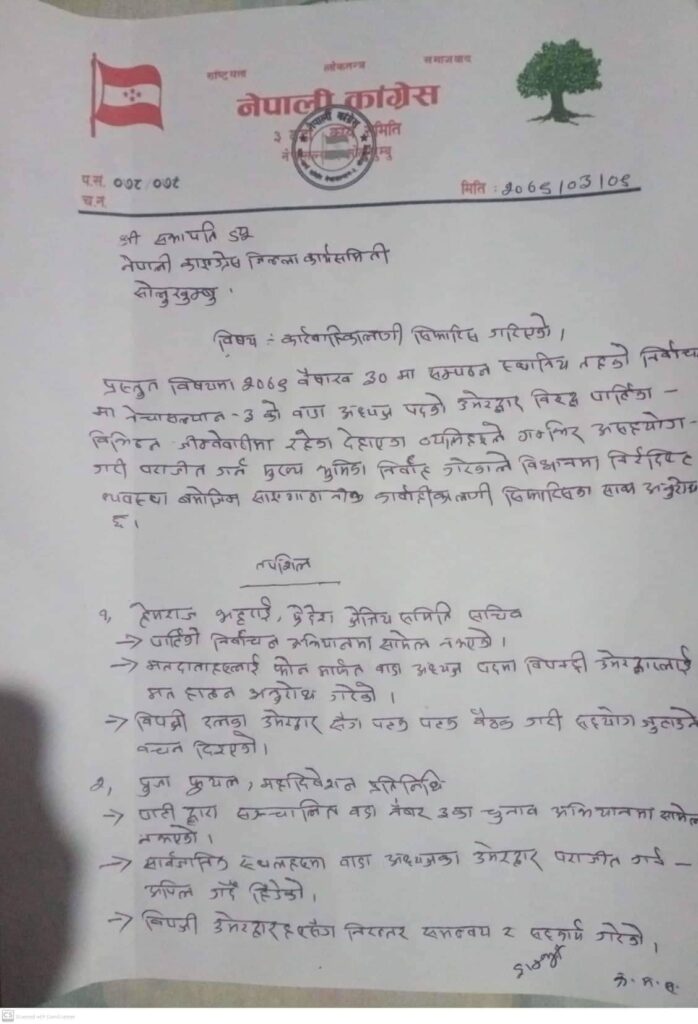 राष्ट्रियता लोकतन्त्र समाजवाद
नेपाली कांग्रेस
३
प.सं. ०७८/०७९ मिति : २०७९/०३/०९
च.नं.
श्री सभापति ज्यू
नेपाली काङ्ग्रेस जिल्ला कार्यसमिती
सोलुखुम्बु ।
विषय : कारवाहिकालागी सिफारिस गरिएको ।
प्रस्तुत विषयमा २०७९ वैषाख ३० मा सम्पन्न स्थानिय तहको निर्वाचन
मा नेचासल्यान - ३ को वडा अध्यक्ष पदको उमेद्वार विरुद्ध पार्तिका -
विभिन्न जीम्मेवारीमा रहेका देहाएका व्यक्तिहरुले गम्भिर असहयोग -
गरी पराजीत गर्न मुख्य भुमिका निर्वाह गरेकाले विधानमा निर्दिष्ट
व्यवस्था बमोजिम साङ्गठानीक कार्वाहीकालागी सिफारिसका साथ अनुरोध
छ ।
तपशिल
१, हेमराज भट्टराई, प्रदेश क्षेत्रिय समिति सचिव
→ पार्तिको निर्वाचन अभियानमा सामेल नभएको ।
→ मतदाताहरुलाई फोन मार्फत वडा अध्यक्ष पदमा विपक्षी उमेद्वारलाई
मत हाल्न अनुरोध गरेको ।
→ विपक्षी दलका उमेद्वार सँग पटक पटक बैठक गरी सहयोग जुटाउने
वचन दिएको ।
२, पुजा फुयल, महाधिवेशन प्रतिनिधि
→ पार्टी द्वारा सञ्चालित वडा नंबर ३ का चुनाव अभियानमा सामेल
नभएको ।
→ सार्वजानिक स्थलहरुमा वाडा अध्यक्षका उमेद्वार पराजीत गर्न -
अपिल गर्दै हिडेको ।
→ विपक्षी उमेद्वारहरुसँग निरन्तर समन्वय र सहकार्य गरेको ।
Scanned with CamScanner